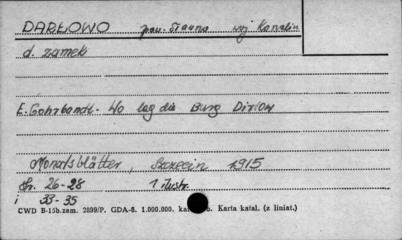 DARŁOWO pow. Sławno woj. Koszalin
d. zamek
E. Gohrbandt. Wo lag die Burg Dirlow
Monatsblätter, Szczecin 1915
str. 26-28 1 ilustr.
i 33-35
CWD B-15b.zam. 2899/P. GDA-8. 1.000.000. Karta katal. (z liniat.)